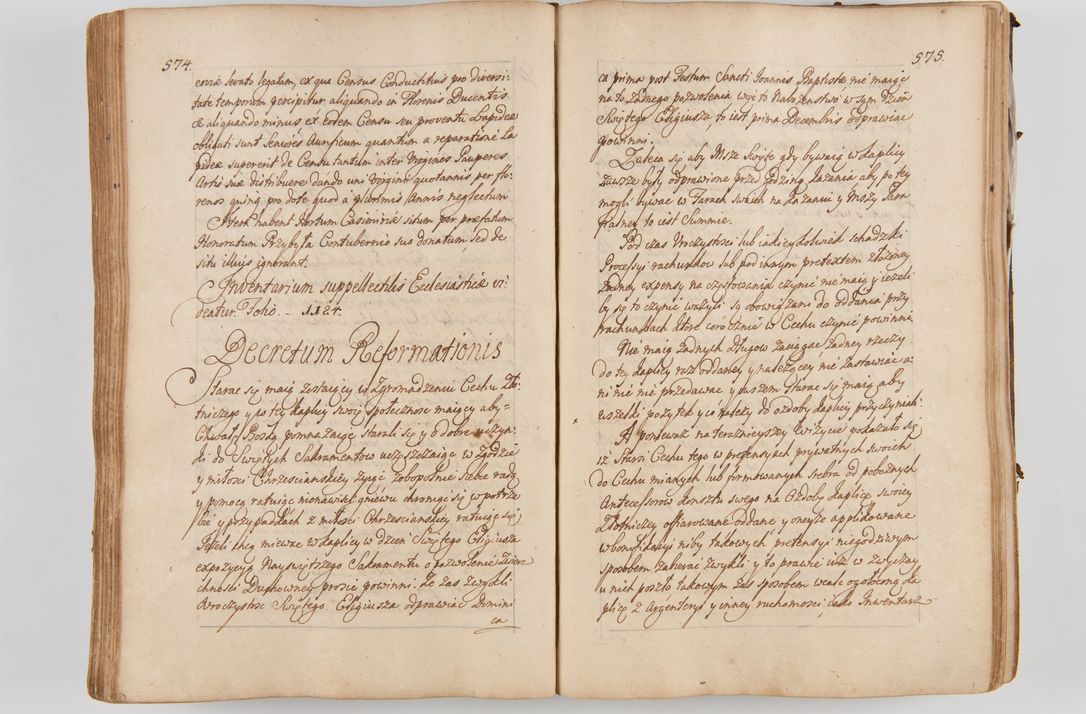 574.
eorae levato legatam, ex qua Census Conductitius pro diversi-
tate temporum percipitur aliquando in Florenis Ducentis
& aliquando minus ex eorem Censu seu proventu Lapideae
obligati sunt Seniores Aurificum quantum a reparatione La
pideae supererit de Censu tantum inter Virgines Pauperes
Artis suae distribuere dando uni Virgini quotannis per flo-
renos quinq pro dote quod a plurimis Annis neglectum
Item habent Hortum Casimiriae situm per praefatum
Honoratum Przybyła Contubernio suo donatum sed de
situ illius ignorant.
Inventarium suppellectilis Ecclesiasticae vi
deatur Folio. - 1124.
Decretum Reformationis
Starac się maią zostaiący w Zgromadzeniu Cechu Zło-
tniczego y w tey Kaplicy swoię społecznosc maiący aby
Chwałę Boską pomnazaiąc starali się y o dobre uczyn-
ki do Swiętych Sakramentow uczęszczaiąc w Zgodzie
y miłosci Chrzescianskiey zyiąc zobopolnie siebie radą
y pomocą ratuiąc nienawisci gniewu chroniąc się w potrze
bie y przypadkach z miłosci Chrzescianskiey ratuiąc się
Jeżeli chcą miewac w Kaplicy w dzien Swiętego Eligiusza
expozycyą Nayswiętszego Sakramentu o pozwolenie Zwierz
chnosci Duchowney prosić powinni. Ze zas zwykli
Uroczystosc Swiętego Eligiusza odprawiac Domini
ca
575.
ca prima post Festum Sancti Joannis Baptistae nie maiąc
na to Żadnego pozwolenia więc to Nabożenstwo w sam Dzien
Swiętego Eligiusza, to iest prima Decembris odprawiac
powinni.
Zaleca się aby Msze Swięte gdy bywaią w Kaplicy
zawsze były odprawione przed godziną Kazania aby po tey
mogli bywac w Farach swoich na Kazaniu y Mszy Para
fialney to iest Summie.
Pod czas Uroczystosci lub iakieykolwiek schadzki
Processyi rachunkow lub pod innym pretextem złożoney
żadney expensy na częstowania czynic nie maią y ieżeli
by się to czynic ważyli są obowiązani do oddania przy
Rachunkach ktore corocznie w Cechu czynic powinni
Nie maią Żadnych Długow zaciągac Żadney rzeczy
do tey Kaplicy raz oddaney y należącey nie Zastawiac a-
ni nie nie przedawac y owszem starac się maią aby
wszelki pożytek y co należy do ozdoby Kaplicy przyczyniali.
A poniewaz na teraznieyszey Wizycie pokazało się
iż Starsi Cechu tego w pretensyach prywatnych swoich
do Cechu mianych lub formowanych srebra od pobożnych
Antecessorow Kunsztu swego na Ozdobę Kaplice Swoiey
Złotniczey offiarowane oddane y oneyze applikowane
w bonifikacyi niby takowych pretensyi niegodziwym
sposobem Zabierac zwykli y to prawie iuz w zwyczay
u nich poszło takowym zas sposobem wcale ogołocona Ka
plicę z Argenteryi y inney ruchomosci iako Inwentarz